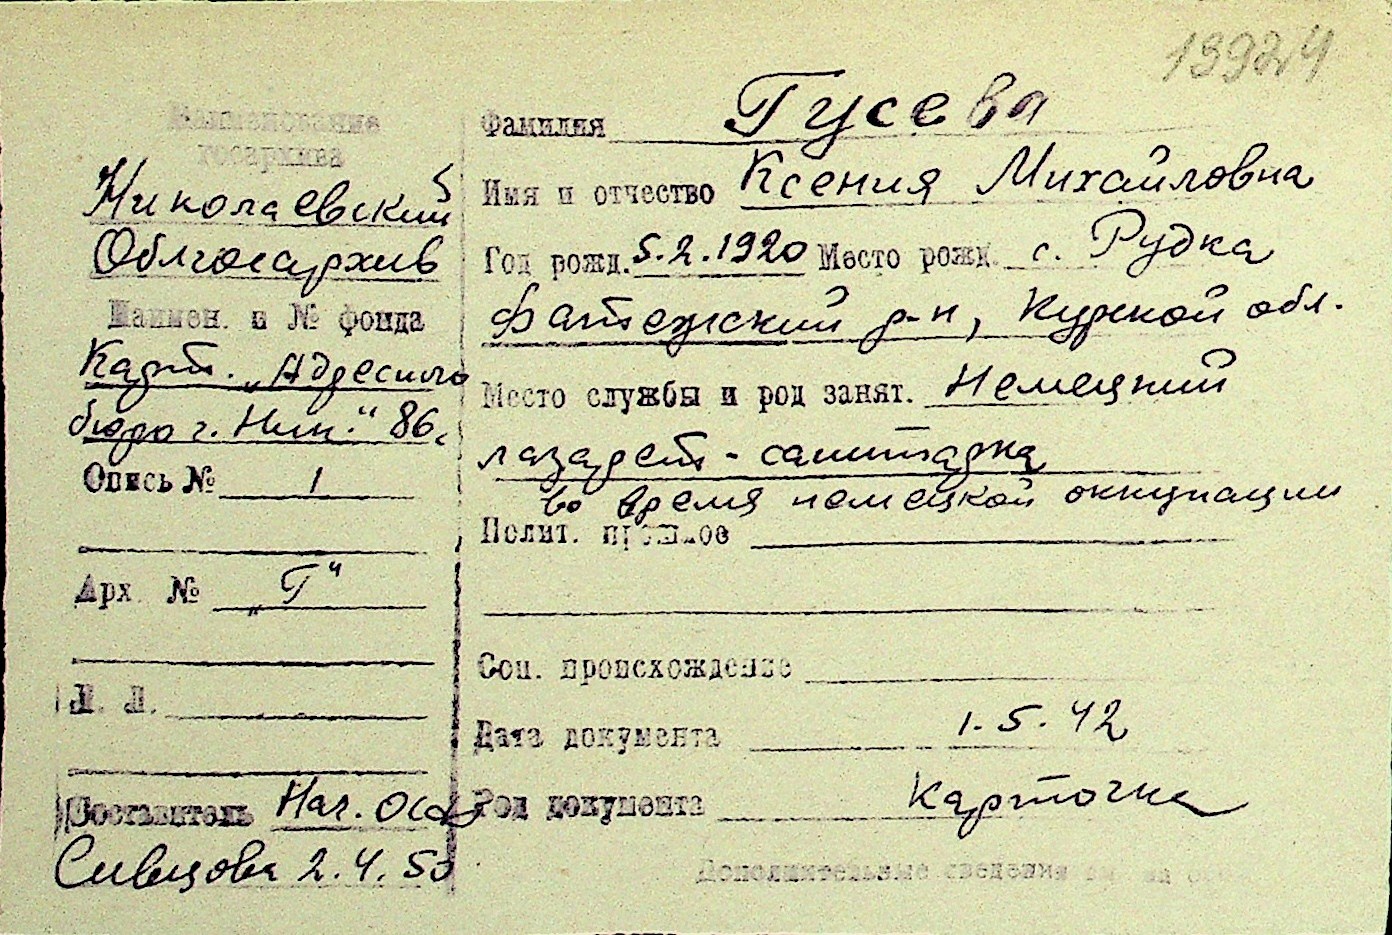 13924
Наименование
госархива
Николаевский
Облгосархив
Наимен. и № фонда
Карт. „Адресного
бюро г. Ник.“ 86.
Опись № 1
Арх. № „Г“
Л. Л.
Составитель Нач. ОСО
Сивцова 2.4.50
Фамилия Гусева
Имя и отчество Ксения Михайловна
Год рожд. 5.2.1920 Место рожд. с. Рудка
Фатежский р-н, Курской обл.
Место службы и род занят. Немецкий
лазарет - санитарка
во время немецкой оккупации
Полит. прошлое
Соц. происхождение
Дата документа 1.5.42
Род документа карточка
Дополнительные сведения см. на